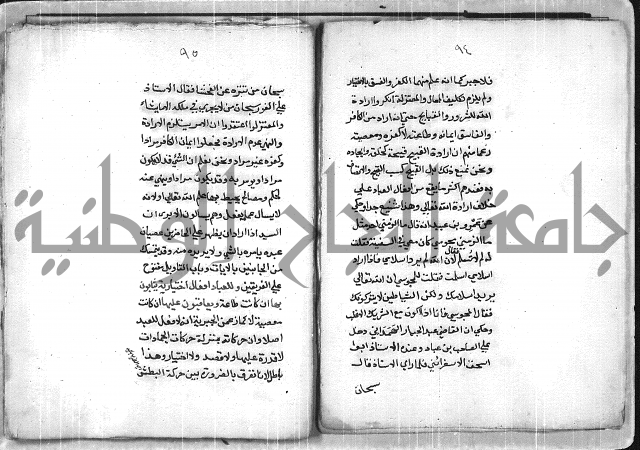 ٩٤
فلا جبر كما انه علم منهما الكفر والفسق بالاختيار
ولم يلزم تكليف المحال والمعتزلة انكروا ارادة
الله للشرور والقبايح حتى انه اراد من الكافر
والفاسق ايمانه وطاعته لا كفره ومعصيته
زعما منهم ان ارادة القبيح قبيحة كخلقه وايجاده
ونحن نمنع ذلك بل القبيح كسب القبيح والاتصاف
به فعندهم اكثر ما يقع من افعال العباد على
خلاف ارادة الله تعالى وهذا شنيع جدا وحكي
عن عمرو بن عبيد انه قال ما الزمني احد مثل
ما الزمني مجوسي كان معي في السفينة فقلت
له لم لا تسلم فقال لان الله لم يرد اسلامي فاذا اراد
اسلامي اسلمت فقلت للمجوسي ان الله تعالى
يريد اسلامك ولكن الشياطين لا يتركونك
فقال المجوسي فانا اذا اكون مع الشريك الاغلب
وحكي ان القاضي عبد الجبار الهمداني دخل
على الصاحب بن عباد وعنده الاستاذ ابو
اسحق الاسفرائني فلما راى الاستاذ قال
سبحان
٩٥
سبحان من تنزه عن الفحشا فقال الاستاذ
على الفور سبحان من لا يجري في ملكه الا ما يشاء
والمعتزلة اعتقدوا ان الامر يستلزم الارادة
والنهي عدم الارادة فجعلوا ايمان الكافر مرادا
وكفره غير مراد ونحن نعلم ان الشي قد لا يكون
مرادا ويؤمر به وقد يكون مرادا وينهى عنه
لحكم ومصالح يحيط بها علم الله تعالى او لانه
لا يسال عما يفعل وهم يسالون الا يرى ان
السيد اذا اراد ان يظهر على الحاضرين عصيان
عبده يامره بالشي ولا يريده منه وقد يتمسك
من الجانبين بالايات وباب التاويل مفتوح
على الفريقين وللعباد افعال اختيارية يثابون
بها ان كانت طاعة ويعاقبون عليها ان كانت
معصية لا كما زعمت الجبرية انه لا فعل للعبد
اصلا وان حركاته بمنزلة حركات الجمادات
لا قدرة عليها ولا قصد ولا اختيار وهذا
باطل لانا نفرق بالضرورة بين حركة البطش
جامعة النجاح الوطنية